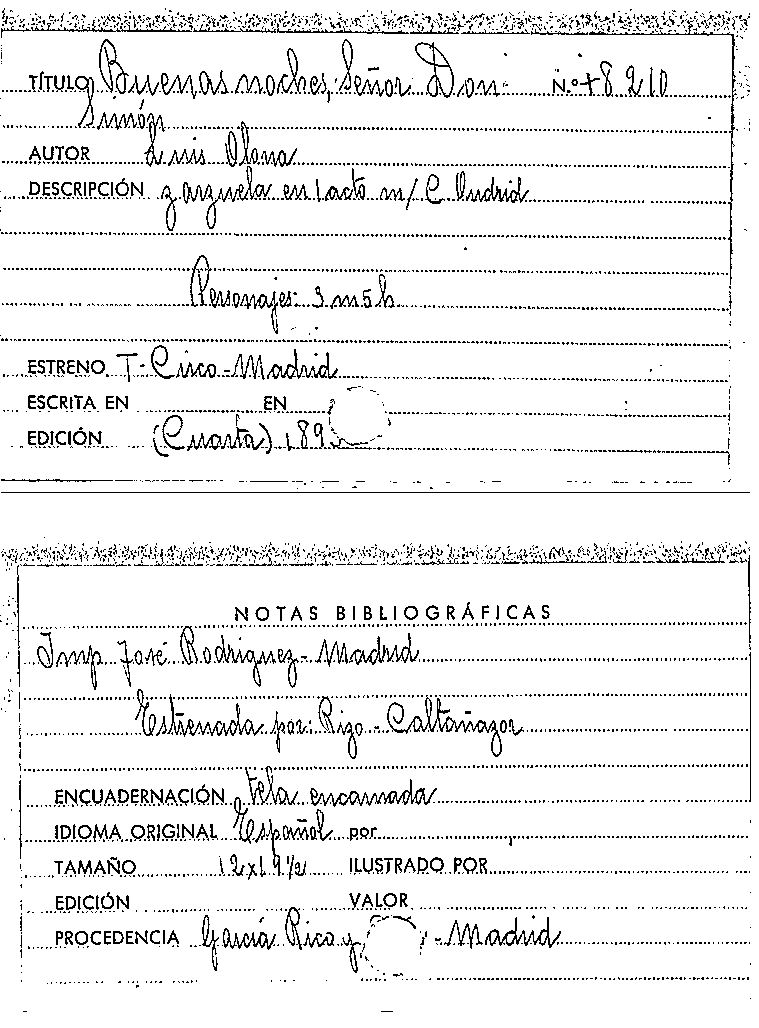 TÍTULO Buenas noches, Señor Don N.º +8210
Simón
AUTOR Luis Olona
DESCRIPCIÓN zarzuela en 1 acto m/ C. Oudrid
Personajes: 3 m 5 h
ESTRENO T- Circo - Madrid
ESCRITA EN EN
EDICIÓN (Cuarta) 189
NOTAS BIBLIOGRÁFICAS
Imp José Rodriguez - Madrid
Estrenada por: Rizo - Caltañazor
ENCUADERNACIÓN tela encarnada
IDIOMA ORIGINAL Español por
TAMAÑO 12x19½ ILUSTRADO POR
EDICIÓN VALOR
PROCEDENCIA García Rico y - Madrid